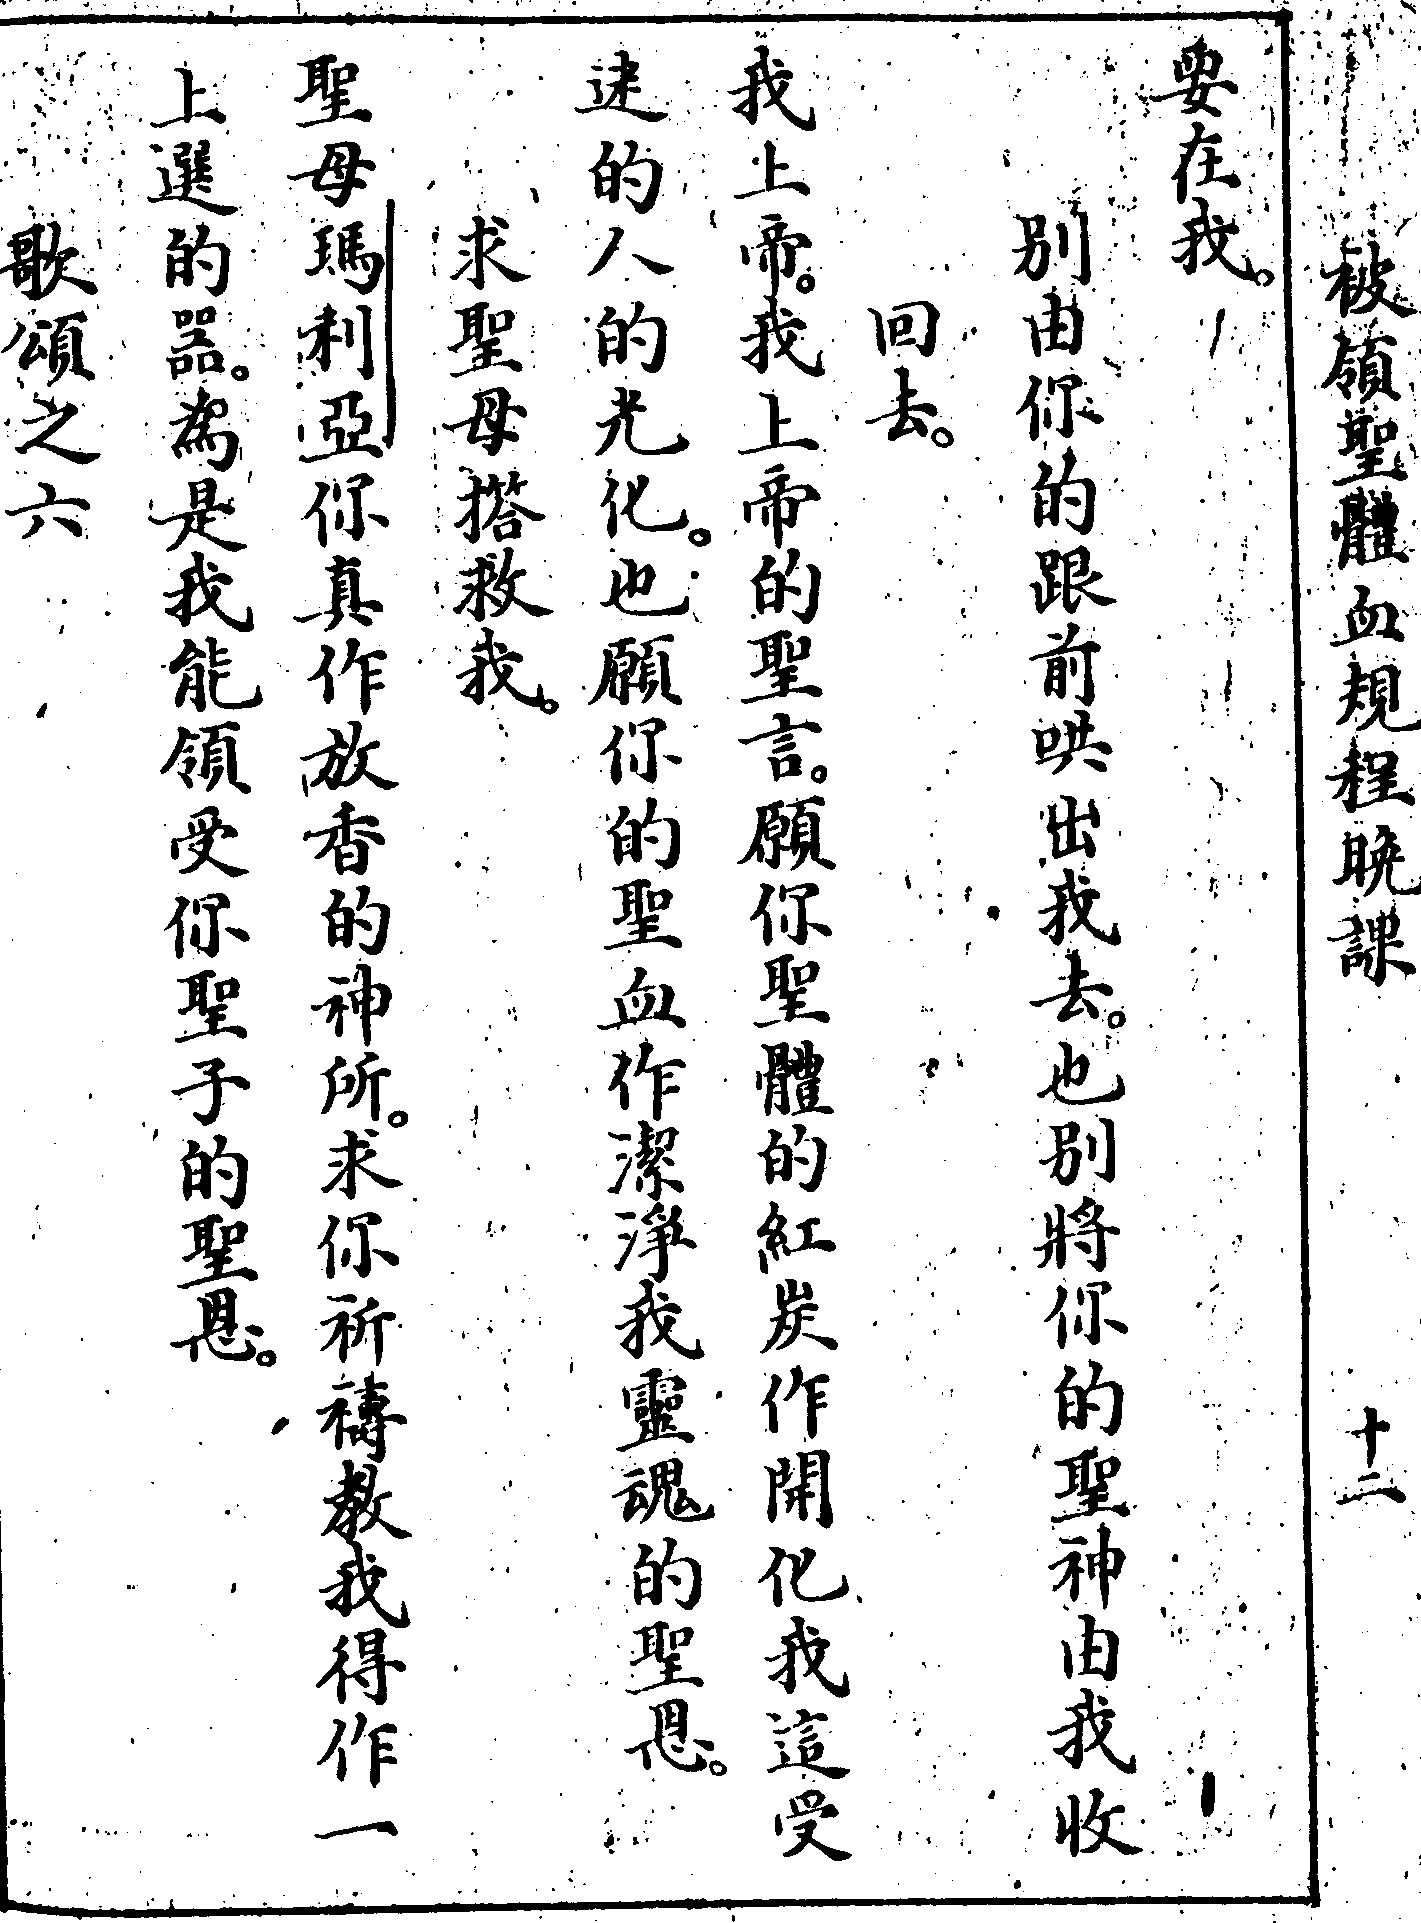 被領聖體血規程晚課 十二
要在我。
別由你的跟前哄出我去。也別將你的聖神由我收
回去。
我上帝。我上帝的聖言。願你聖體的紅炭作開化我這受
迷的人的光化。也願你的聖血作潔淨我靈魂的聖恩。
求聖母搭救我。
聖母瑪利亞你真作放香的神所。求你祈禱教我得作一
上選的器。為是我能領受你聖子的聖恩。
歌頌之六